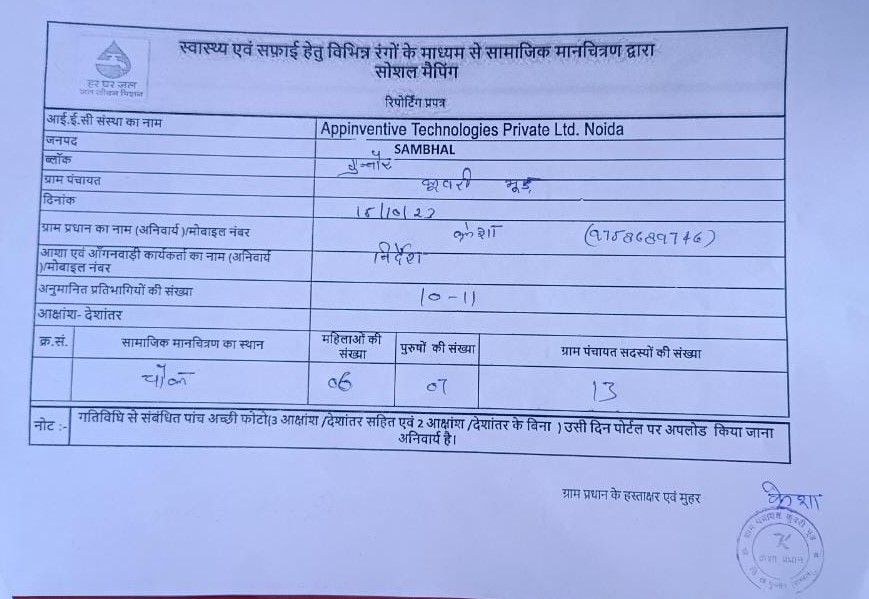 हर घर जल
जल जीवन मिशन
स्वास्थ्य एवं सफ़ाई हेतु विभिन्न रंगों के माध्यम से सामाजिक मानचित्रण द्वारा
सोशल मैपिंग
रिपोर्टिंग प्रपत्र
आई.ई.सी संस्था का नाम Appinventive Technologies Private Ltd. Noida
जनपद SAMBHAL
ब्लॉक गुन्नौर
ग्राम पंचायत भूड़
दिनांक
ग्राम प्रधान का नाम (अनिवार्य )/मोबाइल नंबर केशा (9758689746)
आशा एवं आँगनवाड़ी कार्यकर्ता का नाम (अनिवार्य
)/मोबाइल नंबर निर्देश
अनुमानित प्रतिभागियों की संख्या 10-11
आक्षांश- देशांतर
क्र.सं. सामाजिक मानचित्रण का स्थान महिलाओं की संख्या पुरुषों की संख्या ग्राम पंचायत सदस्यों की संख्या
चौक 06 07 13
नोट :- गतिविधि से संबंधित पांच अच्छी फोटो(3 आक्षांश /देशांतर सहित एवं 2 आक्षांश /देशांतर के बिना ) उसी दिन पोर्टल पर अपलोड किया जाना
अनिवार्य है।
ग्राम प्रधान के हस्ताक्षर एवं मुहर केशा